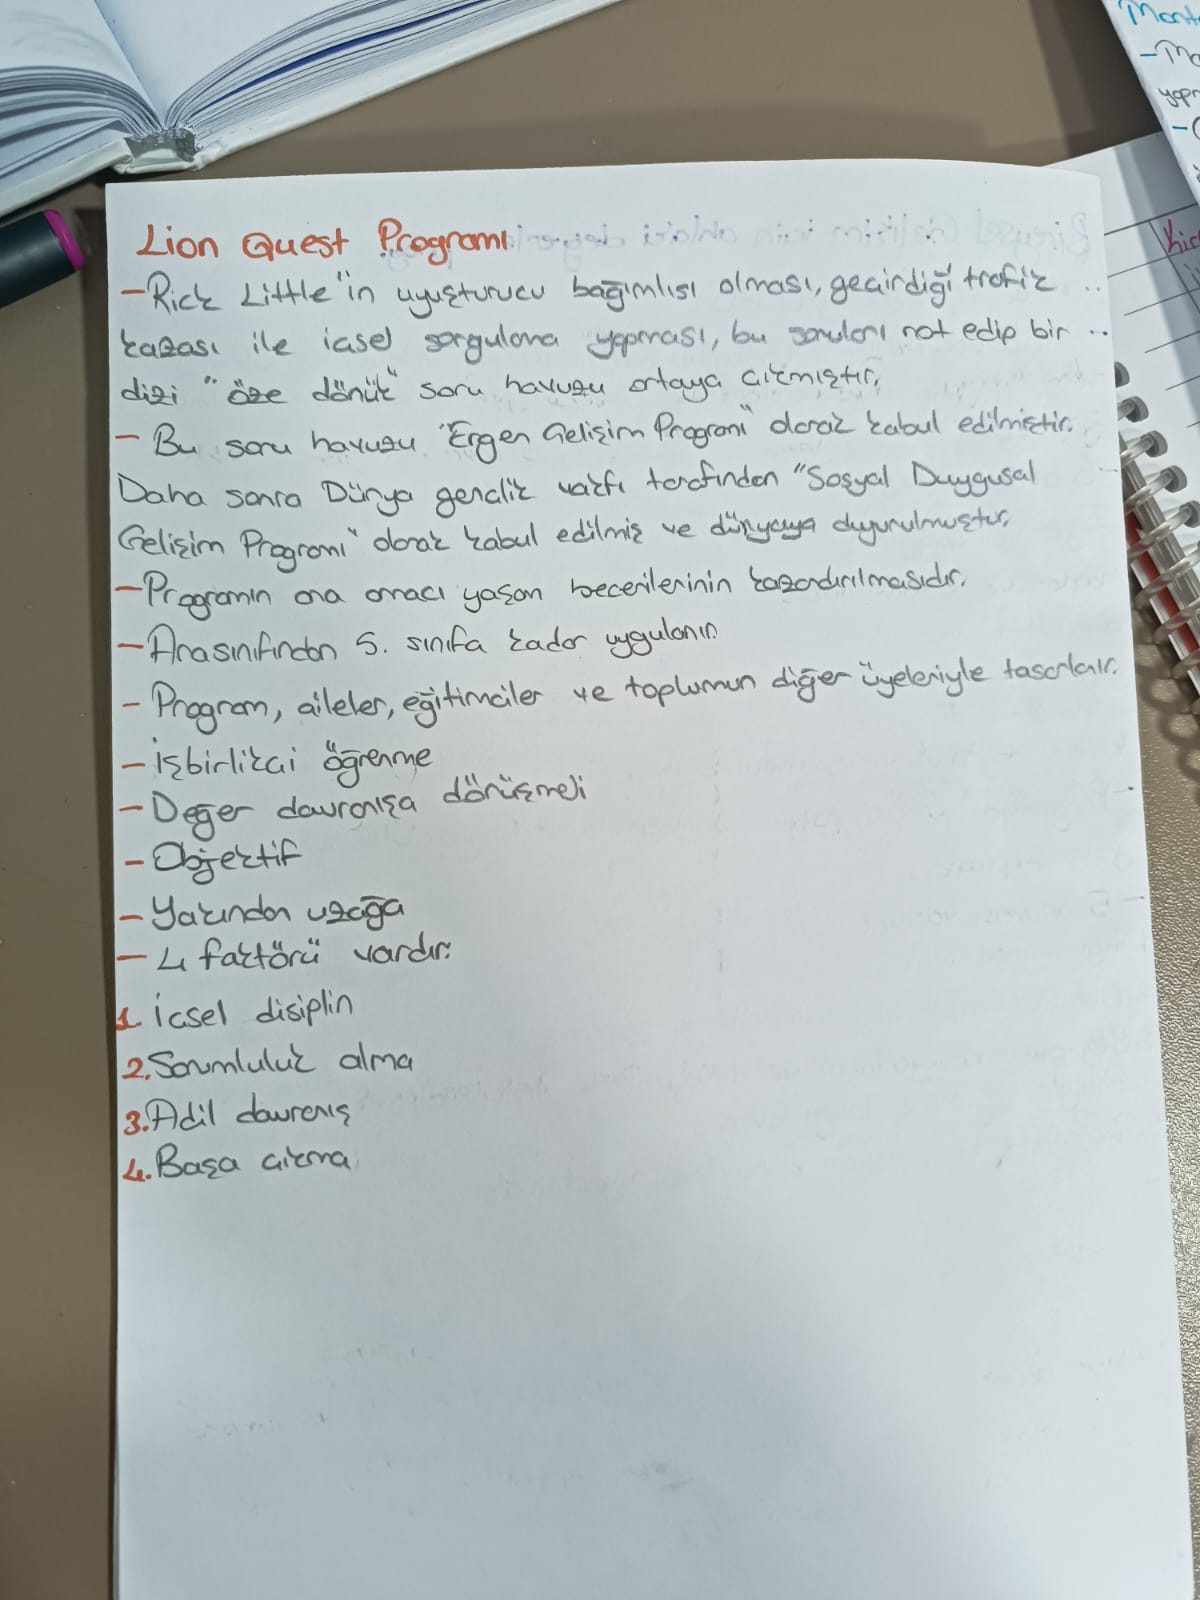 Lion Quest Programı
- Rick Little'in uyuşturucu bağımlısı olması, geçirdiği trafik
kazası ile içsel sorgulama yapması, bu soruları not edip bir
dizi "öze dönük" soru havuzu ortaya çıkmıştır.
- Bu soru havuzu "Ergen Gelişim Programı" olarak kabul edilmiştir.
Daha sonra Dünya gençlik vakfı tarafından "Sosyal Duygusal
Gelişim Programı" olarak kabul edilmiş ve dünyaya duyurulmuştur.
- Programın ana amacı yaşam becerilerinin kazandırılmasıdır.
- Anasınıfından 5. sınıfa kadar uygulanır.
- Program, aileler, eğitimciler ve toplumun diğer üyeleriyle tasarlanır.
- İşbirlikçi öğrenme
- Değer davranışa dönüşmeli
- Objektif
- Yakından uzağa
- 4 faktörü vardır:
1. İçsel disiplin
2. Sorumluluk alma
3. Adil davranış
4. Başa çıkma